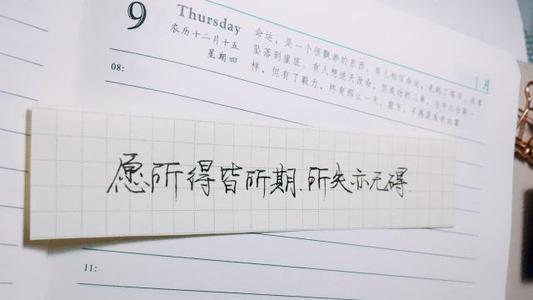 9
Thursday
农历十二月十五
星期四
1 月
命运，是一个很飘渺的东西，有人
坠落到崖底，有人想逆天改命，但成功的
样，但有了毅力，终有那么一天，
08:
愿所得皆所期.所失亦无碍.
11: